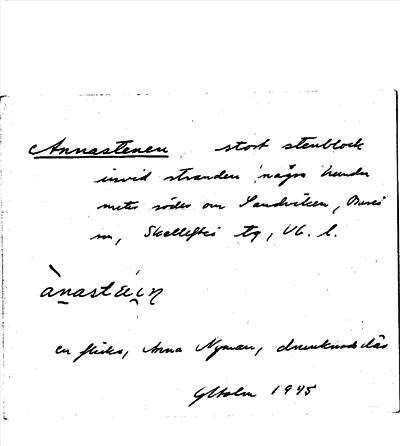 Annastenen stort stenblock
invid stranden några hundra
meter söder om Sandviken, Bureå
sn, Skellefteå tg, Vb. l.
ànastɛin
en flicka, Anna Nyman, drunknade där
GHolm 1945